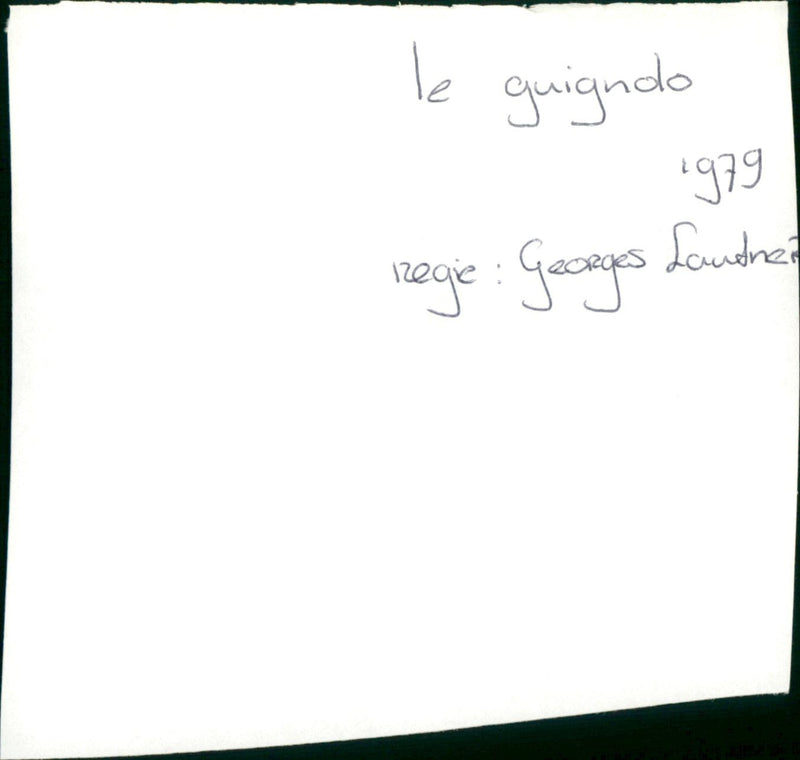 le guignolo
1979
regie : Georges Lautner